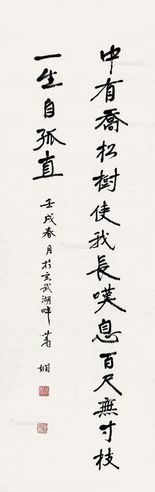 中有喬松樹使我長嘆息百尺無寸枝
一生自孤直
壬戌春月於玄武湖畔蕭嫻